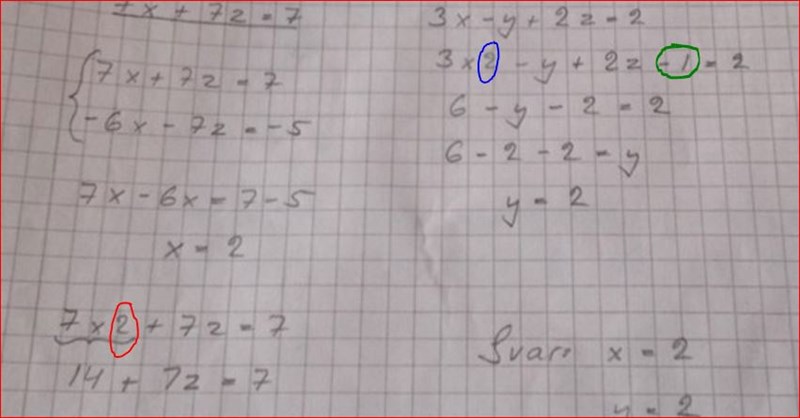 7x + 7z = 7
7x + 7z = 7
-6x - 7z = -5
7x - 6x = 7 - 5
x = 2
7x2 + 7z = 7
14 + 7z = 7
3x - y + 2z = 2
3x2 - y + 2z - 1 = 2
6 - y - 2 = 2
6 - 2 - 2 = y
y = 2
Svar: x = 2
y = 2